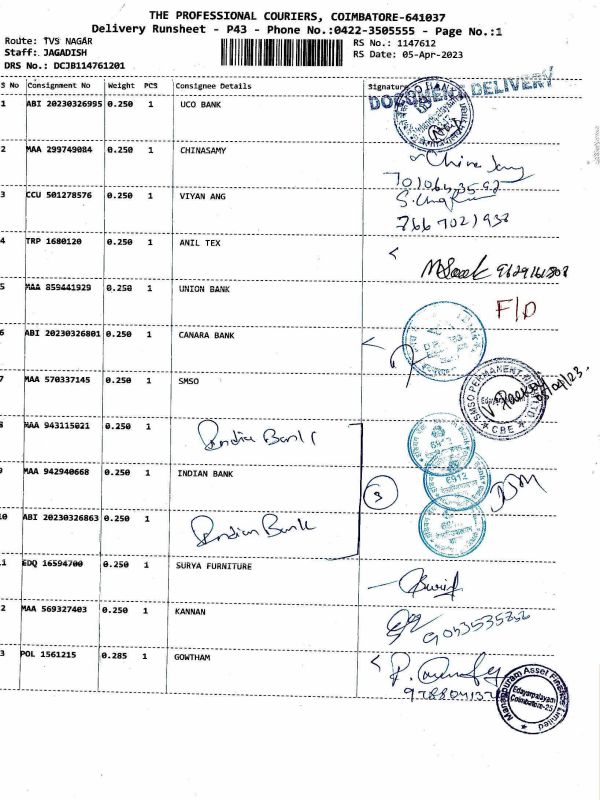 THE PROFESSIONAL COURIERS, COIMBATORE-641037
Delivery Runsheet - P43 - Phone No.:0422-3505555 - Page No.:1
Route: TVS NAGAR
Staff: JAGADISH
DRS No.: DCJB114761201
RS No.: 1147612
RS Date: 05-Apr-2023
S No Consignment No Weight PCS Consignee Details Signature
DOCUMENT DELIVERY
1 ABI 20230326995 0.250 1 UCO BANK
2 MAA 299749084 0.250 1 CHINASAMY
3 CCU 501278576 0.250 1 VIYAN ANG
4 TRP 1680120 0.250 1 ANIL TEX
9629161808
5 MAA 859441929 0.250 1 UNION BANK
F/D
6 ABI 20230326801 0.250 1 CANARA BANK
7 MAA 570337145 0.250 1 SMSO
SMSO PERMANENT
CBE
05/04/23
8 MAA 943115021 0.250 1 Indian Bank
9 MAA 942940668 0.250 1 INDIAN BANK
3
10 ABI 20230326863 0.250 1 Indian Bank
11 EDQ 16594700 0.250 1 SURYA FURNITURE
2 MAA 569327403 0.250 1 KANNAN
3 POL 1561215 0.285 1 GOWTHAM
Manappuram Asset Finance Limited
Edayarpalayam
Coimbatore-25